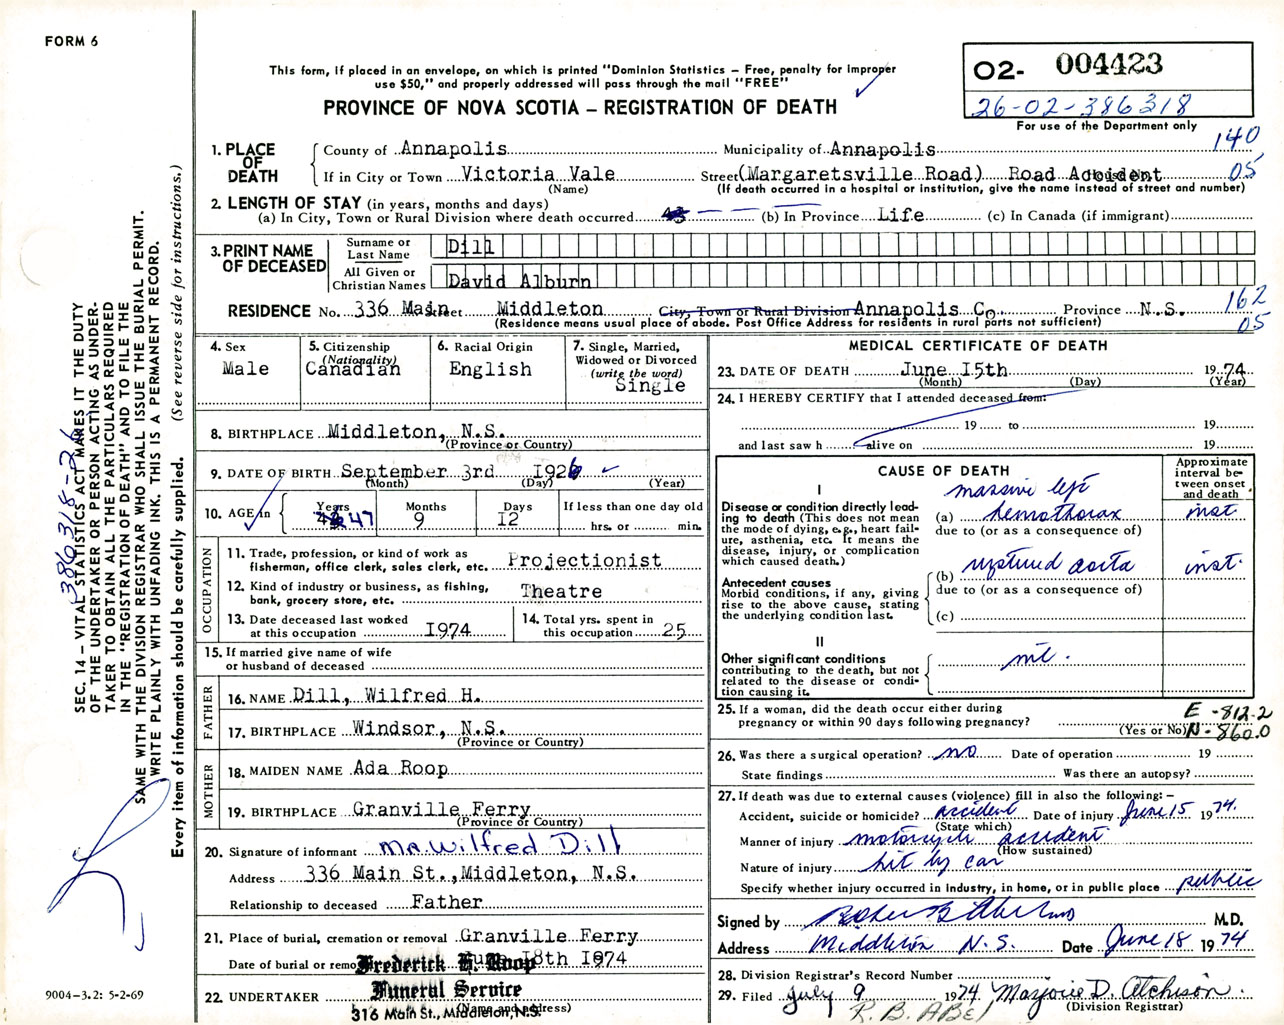 FORM 6
This form, if placed in an envelope, on which is printed "Dominion Statistics – Free, penalty for improper
use $50," and properly addressed will pass through the mail "FREE"
PROVINCE OF NOVA SCOTIA – REGISTRATION OF DEATH
O2- 004423
26-02-386318
For use of the Department only
1. PLACE OF DEATH County of Annapolis Municipality of Annapolis 140
If in City or Town Victoria Vale Street (Margaretsville Road) Road Accident 05
(Name) (If death occurred in a hospital or institution, give the name instead of street and number)
2. LENGTH OF STAY (in years, months and days)
(a) In City, Town or Rural Division where death occurred (b) In Province Life (c) In Canada (if immigrant)
3. PRINT NAME OF DECEASED Surname or Last Name Dill
All Given or Christian Names David Alburn
RESIDENCE No. 336 Main Street Middleton City, Town or Rural Division Annapolis Co. Province N.S. 162
(Residence means usual place of abode. Post Office Address for residents in rural parts not sufficient) 05
4. Sex Male
5. Citizenship (Nationality) Canadian
6. Racial Origin English
7. Single, Married, Widowed or Divorced (write the word) Single
8. BIRTHPLACE Middleton, N.S.
(Province or Country)
9. DATE OF BIRTH September 3rd 1926
(Month) (Day) (Year)
10. AGE in Years 47 Months 9 Days 12 If less than one day old
hrs. or min.
OCCUPATION
11. Trade, profession, or kind of work as
fisherman, office clerk, sales clerk, etc. Projectionist
12. Kind of industry or business, as fishing,
bank, grocery store, etc. Theatre
13. Date deceased last worked
at this occupation 1974
14. Total yrs. spent in
this occupation 25
15. If married give name of wife
or husband of deceased
FATHER
16. NAME Dill, Wilfred H.
17. BIRTHPLACE Windsor, N.S.
(Province or Country)
MOTHER
18. MAIDEN NAME Ada Roop
19. BIRTHPLACE Granville Ferry
(Province or Country)
20. Signature of informant Mr. Wilfred Dill
Address 336 Main St., Middleton, N.S.
Relationship to deceased Father
21. Place of burial, cremation or removal Granville Ferry
Date of burial or removal June 18th 1974
22. UNDERTAKER Frederick E. Roop
Funeral Service
(Name and address)
316 Main St., Middleton, N.S.
MEDICAL CERTIFICATE OF DEATH
23. DATE OF DEATH June 15th 1974
(Month) (Day) (Year)
24. I HEREBY CERTIFY that I attended deceased from:
19 to 19
and last saw h alive on 19
CAUSE OF DEATH
Approximate interval between onset and death
I
Disease or condition directly leading to death (This does not mean the mode of dying, e.g., heart failure, asthenia, etc. It means the disease, injury, or complication which caused death.)
massive left
(a) hemothorax inst.
due to (or as a consequence of)
Antecedent causes
Morbid conditions, if any, giving rise to the above cause, stating the underlying condition last.
(b) ruptured aorta inst.
due to (or as a consequence of)
(c)
II
Other significant conditions contributing to the death, but not related to the disease or condition causing it.
nil.
25. If a woman, did the death occur either during
pregnancy or within 90 days following pregnancy?
(Yes or No)
E-812.2
N-860.0
26. Was there a surgical operation? no Date of operation 19
State findings Was there an autopsy?
27. If death was due to external causes (violence) fill in also the following: –
Accident, suicide or homicide? accident Date of injury June 15 1974.
(State which)
Manner of injury motorcycle accident
(How sustained)
Nature of injury hit by car
Specify whether injury occurred in industry, in home, or in public place public
Signed by M.D.
Address Middleton N.S. Date June 18 1974
28. Division Registrar's Record Number
29. Filed July 9 1974 Marjorie D. Atchison.
(Division Registrar)
R. B. ABEl
SEC. 14 – VITAL STATISTICS ACT MAKES IT THE DUTY
OF THE UNDERTAKER OR PERSON ACTING AS UNDER-
TAKER TO OBTAIN ALL THE PARTICULARS REQUIRED
IN THE "REGISTRATION OF DEATH" AND TO FILE THE
SAME WITH THE DIVISION REGISTRAR WHO SHALL ISSUE THE BURIAL PERMIT.
WRITE PLAINLY WITH UNFADING INK. THIS IS A PERMANENT RECORD.
Every item of information should be carefully supplied. (See reverse side for instructions.)
386318-26
9004-3.2: 5-2-69